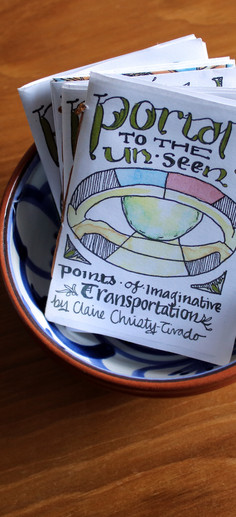 Portal
TO THE
un·seen
points·of·Imaginative
Transportation
by Claire Christy-Tirado